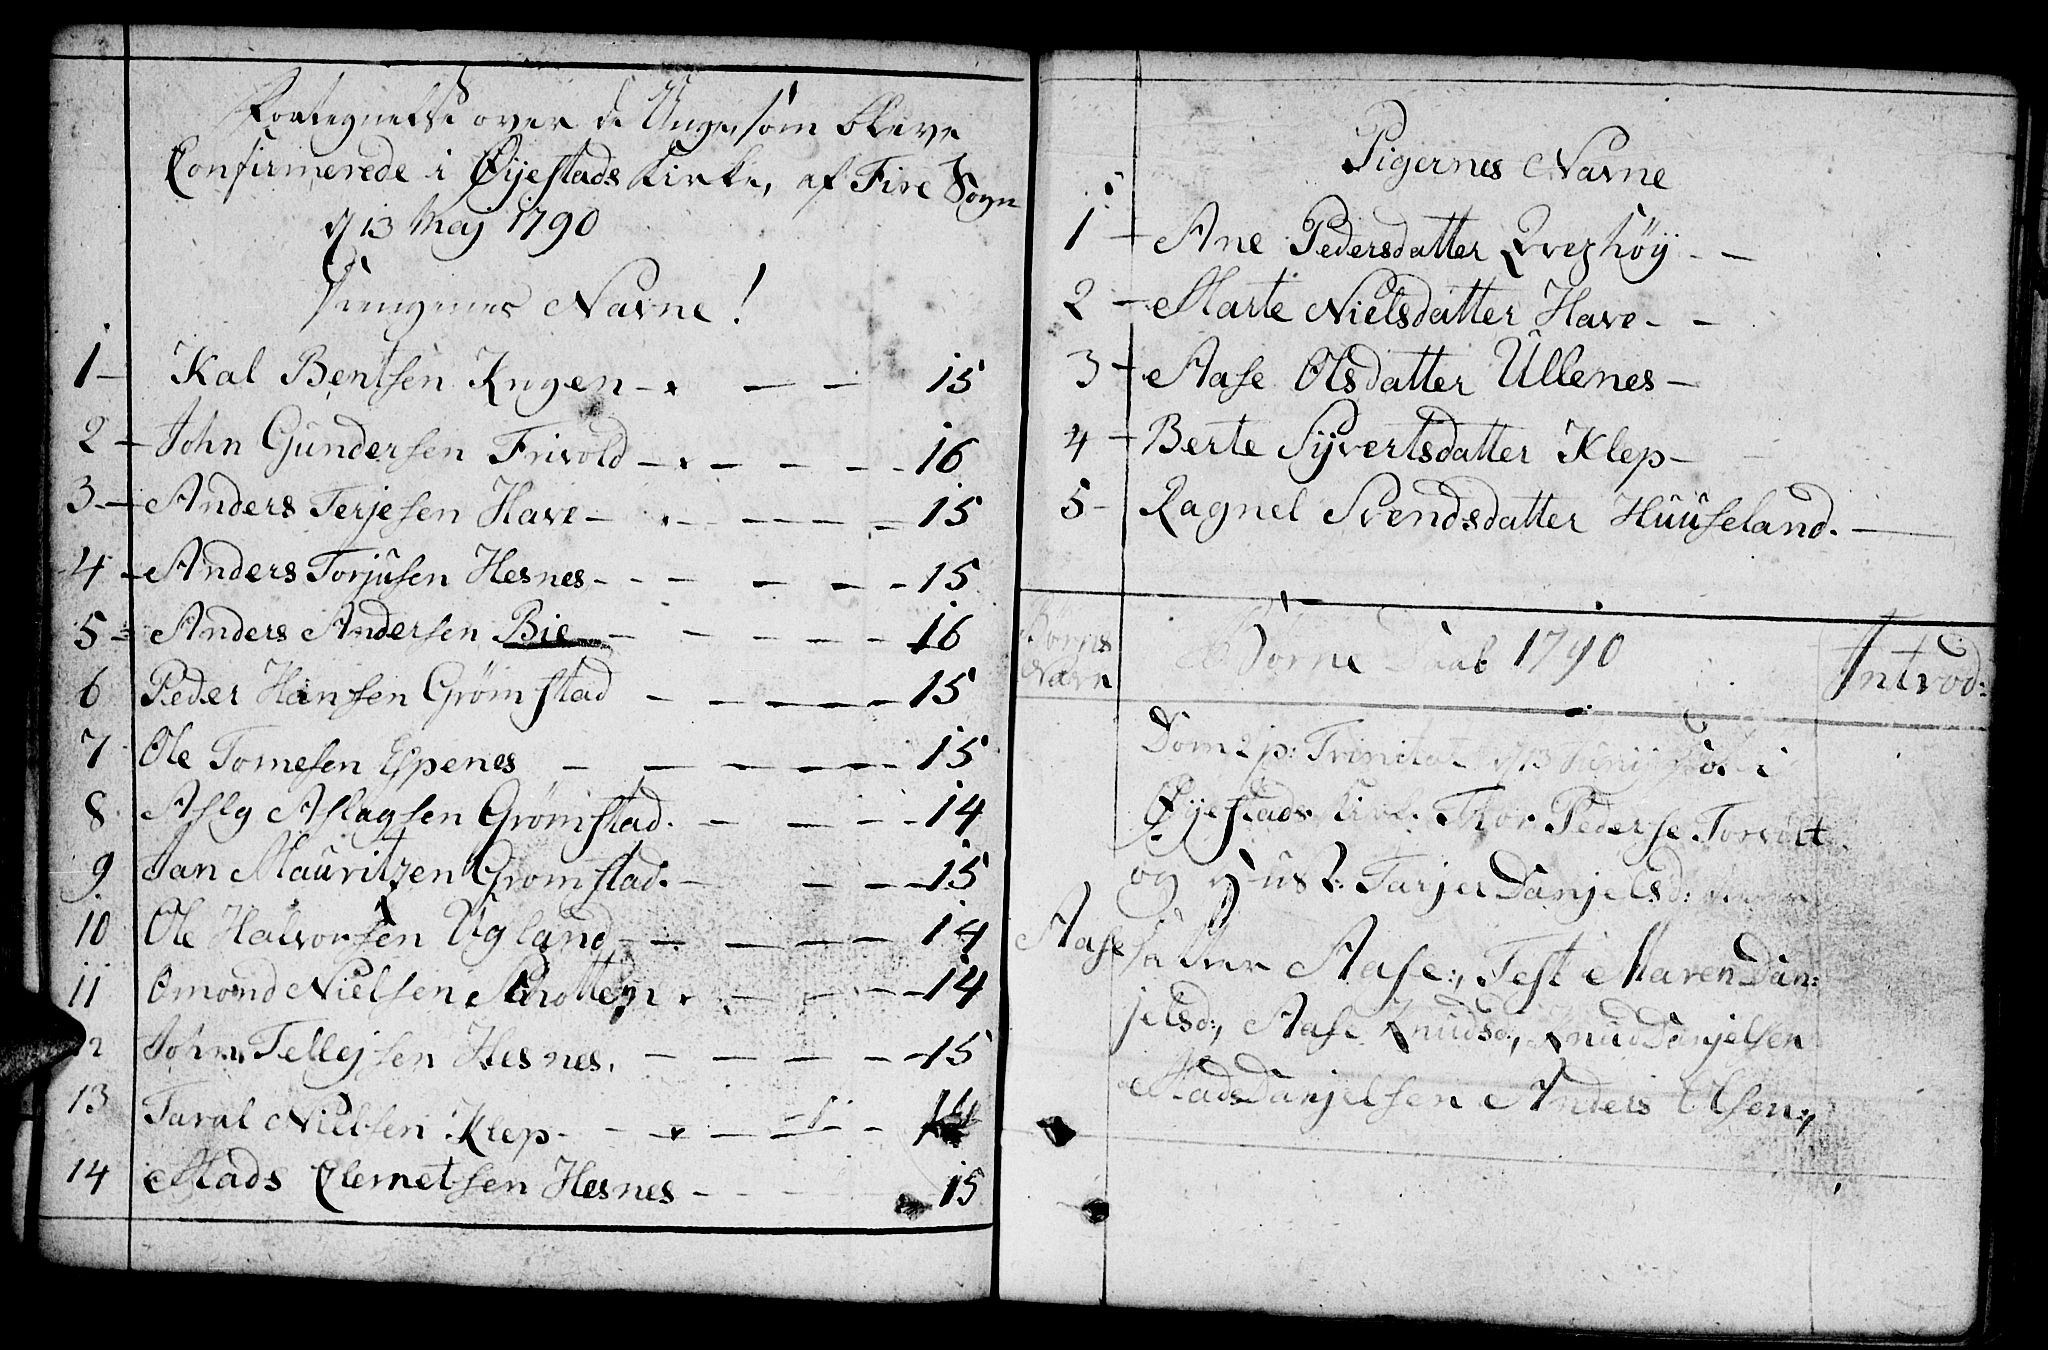 Fortegnelse over de Unge, som bleve
Confirmerede i Øijestads Kirke, af Fire Sogn
d 13 Maj 1790
Drengenes Navne!
1 Kal Bentsen Kugen 15
2 John Gundersen Frivold 16
3 Anders Terjesen Have 15
4 Anders Torjusen Hesnes 15
5 Anders Andersen Bie 16
6 Peder Hansen Grømstad 15
7 Ole Tomesen Espenes 15
8 Aslg Aslagsen Grømstad. 14
9 Jan Mauritzen Grømstad. 15
10 Ole Halvorsen Ugland 14
11 Omond Nielsen 14
12 John Tellejsen Hesnes. 15
13 Taral Nielsen Klep
14 Mads Clemetsen Hesnes 15
Pigernes Navne
1 Ane Pedersdatter
2 Marte Nielsdatter Have
3 Aase Olsdatter Ullenes
4 Berte Syvertsdatter Klep
5 Ragnel Svendsdatter Huuseland.
Borns Navn
Børne Daab 1790
Introd:
Dom 2 p: Trinitat d 13 Junij i
Øyestads Kirke Thor Peders
og Hust: Tarjer Danjelsd:
Aase
Aase:, Test Maren Dan:
jelsd:, Aase Knudsd:, Knud Danjelsen
Mads Danjelsen Anders Olsen:,